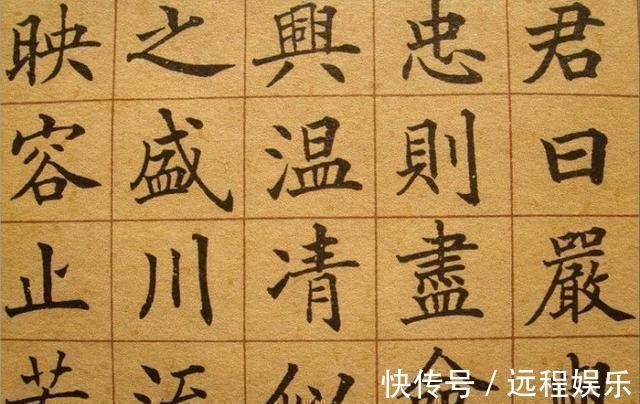 君曰嚴
忠則盡
興温凊似
之盛川流
映容止若
快传号 / 远程娱乐